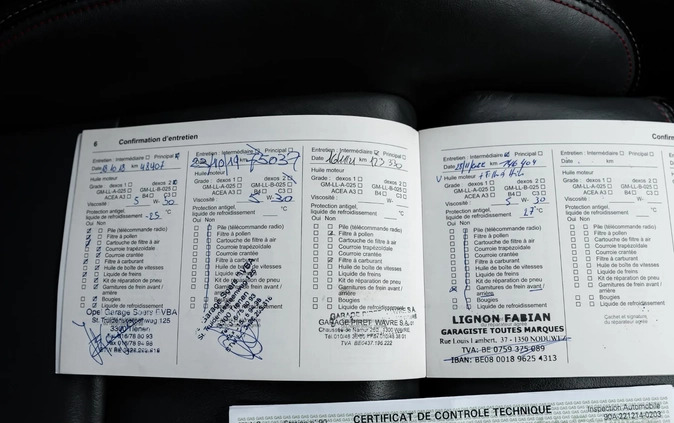 6 Confirmation d'entretien
Entretien : Intermédiaire Principal
km 43407
Huile moteur
Grade : dexos 1 dexos 2
GM-LL-A-025 GM-LL-B-025
ACEA A3 B4 C3
Viscosité : 5 W- 30
Protection antigel,
liquide de refroidissement: -25 °C
Oui Non
Pile (télécommande radio)
Filtre à pollen
Cartouche de filtre à air
Courroie trapézoïdale
Courroie crantée
Filtre à carburant
Huile de boîte de vitesses
Liquide de freins
Kit de réparation de pneu
Garnitures de frein avant /
arrière
Bougies
Liquide de refroidissement
Opel Garage BVBA
St. Truidensesteenweg 125
Entretien : Intermédiaire Principal
22/10/19 km 75037
Huile moteur
Grade : dexos 1 dexos 2
GM-LL-A-025 GM-LL-B-025
ACEA A3 B4 C3
Viscosité : 5 W- 30
Protection antigel,
liquide de refroidissement: °C
Oui Non
Pile (télécommande radio)
Filtre à pollen
Cartouche de filtre à air
Courroie trapézoïdale
Courroie crantée
Filtre à carburant
Huile de boîte de vitesses
Liquide de freins
Kit de réparation de pneu
Garnitures de frein avant /
arrière
Bougies
Liquide de refroidissement
Entretien : Intermédiaire Principal
Date km 123 330
Huile moteur
Grade : dexos 1 dexos 2
GM-LL-A-025 GM-LL-B-025
ACEA A3 B4 C3
Viscosité : W-
Protection antigel,
liquide de refroidissement: °C
Oui Non
Pile (télécommande radio)
Filtre à pollen
Cartouche de filtre à air
Courroie trapézoïdale
Courroie crantée
Filtre à carburant
Huile de boîte de vitesses
Liquide de freins
Kit de réparation de pneu
Garnitures de frein avant /
arrière
Bougies
Liquide de refroidissement
GARAGE PIRET WAVRE S.A.
Chaussée de Namur
TVA BE0437.196.222
Entretien : Intermédiaire Principal
Date km 146 404
Huile moteur
Grade : dexos 1 dexos 2
GM-LL-A-025 GM-LL-B-025
ACEA A3 B4 C3
Viscosité : 5 W- 30
Protection antigel,
liquide de refroidissement: 27 °C
Oui Non
Pile (télécommande radio)
Filtre à pollen
Cartouche de filtre à air
Courroie trapézoïdale
Courroie crantée
Filtre à carburant
Huile de boîte de vitesses
Liquide de freins
Kit de réparation de pneu
Garnitures de frein avant /
arrière
Bougies
Liquide de refroidissement
LIGNON FABIAN
GARAGISTE TOUTES MARQUES
Rue Louis Lambert, 37 - 1350 NODUWEZ
TVA: BE 0759 375 089
IBAN: BE08 0018 9625 4313
Entretien : Intermédiaire Principal
Date km
Huile moteur
Grade : dexos 1
GM-LL-A-025
ACEA A3
Viscosité :
Protection antigel,
liquide de refroidissement:
Oui Non
Pile (télécommande radio)
Filtre à pollen
Cartouche de filtre à air
Courroie trapézoïdale
Courroie crantée
Filtre à carburant
Huile de boîte de vitesses
Liquide de freins
Kit de réparation de pneu
Garnitures de frein avant /
arrière
Bougies
Liquide de refroidissement
Cachet et signature
du réparateur agréé
CERTIFICAT DE CONTROLE TECHNIQUE
Inspection Automobile
90A-221214-0203